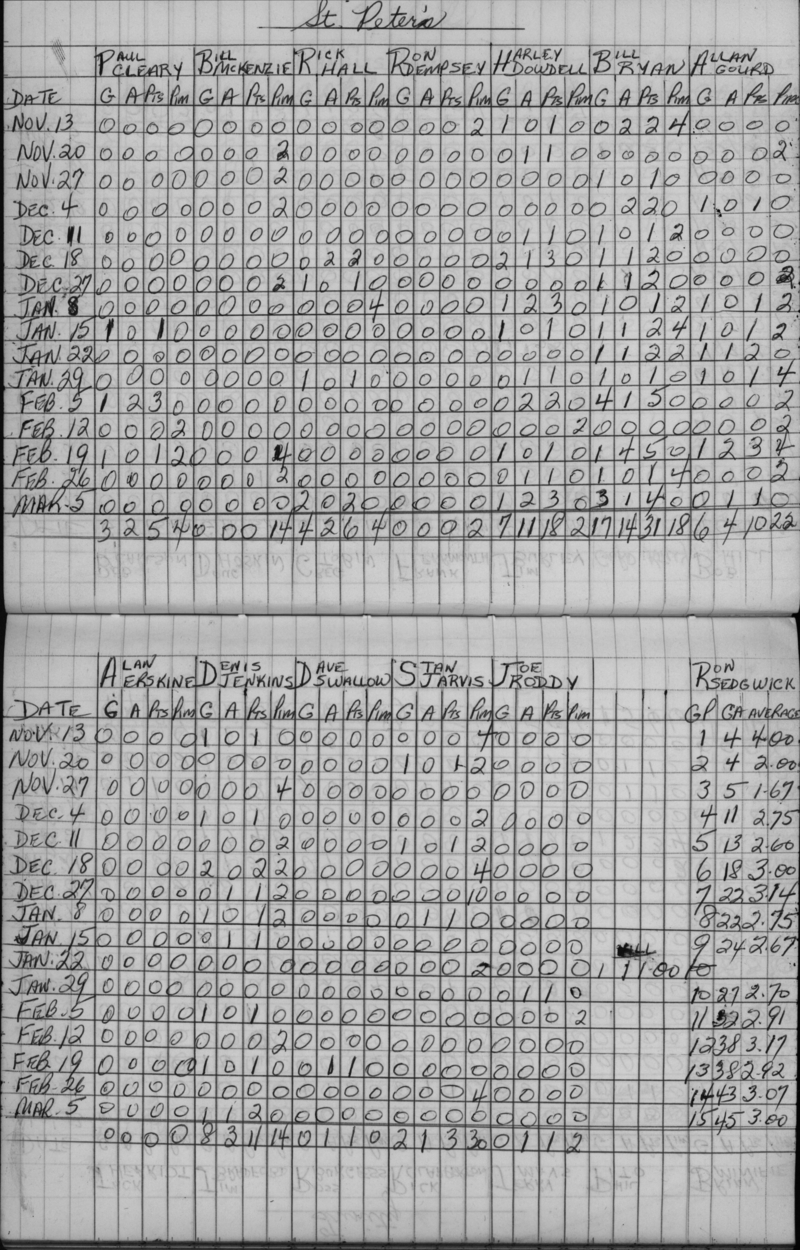 St. Peter's
PAUL CLEARY BILL MCKENZIE RICK HALL RON DEMPSEY HARLEY DOWDELL BILL RYAN ALLAN GOURD
DATE G A Pts Pim G A Pts Pim G A Pts Pim G A Pts Pim G A Pts Pim G A Pts Pim G A Pts Pim
NOV. 13 0 0 0 0 0 0 0 0 0 0 0 0 0 0 0 2 1 0 1 0 0 2 2 4 0 0 0 0
NOV. 20 0 0 0 0 0 0 0 2 0 0 0 0 0 0 0 0 0 1 1 0 0 0 0 0 0 0 0 2
NOV. 27 0 0 0 0 0 0 0 2 0 0 0 0 0 0 0 0 0 0 0 0 1 0 1 0 0 0 0 0
DEC. 4 0 0 0 0 0 0 0 2 0 0 0 0 0 0 0 0 0 0 0 0 0 2 2 0 1 0 1 0
DEC. 11 0 0 0 0 0 0 0 0 0 0 0 0 0 0 0 0 0 1 1 0 1 0 1 2 0 0 0 0
DEC 18 0 0 0 0 0 0 0 0 0 2 2 0 0 0 0 0 2 1 3 0 1 1 2 0 0 0 0 0
DEC. 27 0 0 0 0 0 0 0 2 1 0 1 0 0 0 0 0 0 0 0 0 1 1 2 0 0 0 0 2
JAN. 8 0 0 0 0 0 0 0 0 0 0 0 4 0 0 0 0 1 2 3 0 1 0 1 2 1 0 1 2
JAN. 15 1 0 1 0 0 0 0 0 0 0 0 0 0 0 0 0 1 0 1 0 1 1 2 4 1 0 1 2
JAN. 22 0 0 0 0 0 0 0 0 0 0 0 0 0 0 0 0 0 0 0 0 1 1 2 2 1 1 2 0
JAN. 29 0 0 0 0 0 0 0 0 1 0 1 0 0 0 0 0 0 1 1 0 1 0 1 0 1 0 1 4
FEB. 5 1 2 3 0 0 0 0 0 0 0 0 0 0 0 0 0 0 2 2 0 4 1 5 0 0 0 0 2
FEB. 12 0 0 0 2 0 0 0 0 0 0 0 0 0 0 0 0 0 0 0 2 0 0 0 0 0 0 0 2
FEB. 19 1 0 1 2 0 0 0 4 0 0 0 0 0 0 0 0 1 0 1 0 1 4 5 0 1 2 3 4
FEB. 26 0 0 0 0 0 0 0 2 0 0 0 0 0 0 0 0 0 1 1 0 1 0 1 4 0 0 0 2
MAR. 5 0 0 0 0 0 0 0 0 2 0 2 0 0 0 0 0 1 2 3 0 3 1 4 0 0 1 1 0
3 2 5 4 0 0 0 14 4 2 6 4 0 0 0 2 7 11 18 2 17 14 31 18 6 4 10 22
ALAN ERSKINE DENIS JENKINS DAVE SWALLOW STAN JARVIS JOE RODDY RON SEDGWICK
DATE G A Pts Pim G A Pts Pim G A Pts Pim G A Pts Pim G A Pts Pim GP GA AVERAGE
NOV. 13 0 0 0 0 1 0 1 0 0 0 0 0 0 0 0 4 0 0 0 0 1 4 4.00
NOV. 20 0 0 0 0 0 0 0 0 0 0 0 0 1 0 1 2 0 0 0 0 2 4 2.00
NOV. 27 0 0 0 0 0 0 0 4 0 0 0 0 0 0 0 0 0 0 0 0 3 5 1.67
DEC. 4 0 0 0 0 1 0 1 0 0 0 0 0 0 0 0 2 0 0 0 0 4 11 2.75
DEC 11 0 0 0 0 0 0 0 2 0 0 0 0 1 0 1 2 0 0 0 0 5 13 2.60
DEC. 18 0 0 0 0 2 0 2 2 0 0 0 0 0 0 0 4 0 0 0 0 6 18 3.00
DEC. 27 0 0 0 0 0 1 1 2 0 0 0 0 0 0 0 10 0 0 0 0 7 22 3.14
JAN. 8 0 0 0 0 1 0 1 2 0 0 0 0 0 1 1 0 0 0 0 0 8 22 2.75
JAN. 15 0 0 0 0 0 1 1 0 0 0 0 0 0 0 0 0 0 0 0 0 9 24 2.67
JAN. 22 0 0 0 0 0 0 0 0 0 0 0 0 0 0 0 2 0 0 0 0 1 1 1.00
JAN. 29 0 0 0 0 0 0 0 0 0 0 0 0 0 0 0 0 0 1 1 0 10 27 2.70
FEB. 5 0 0 0 0 1 0 1 0 0 0 0 0 0 0 0 0 0 0 0 2 11 32 2.91
FEB. 12 0 0 0 0 0 0 0 2 0 0 0 0 0 0 0 0 0 0 0 0 12 38 3.17
FEB. 19 0 0 0 0 1 0 1 0 0 1 1 0 0 0 0 0 0 0 0 0 13 38 2.92
FEB. 26 0 0 0 0 0 0 0 0 0 0 0 0 0 0 0 4 0 0 0 0 14 43 3.07
MAR. 5 0 0 0 0 1 1 2 0 0 0 0 0 0 0 0 0 0 0 0 0 15 45 3.00
0 0 0 0 8 3 11 14 0 1 1 0 2 1 3 30 0 1 1 2